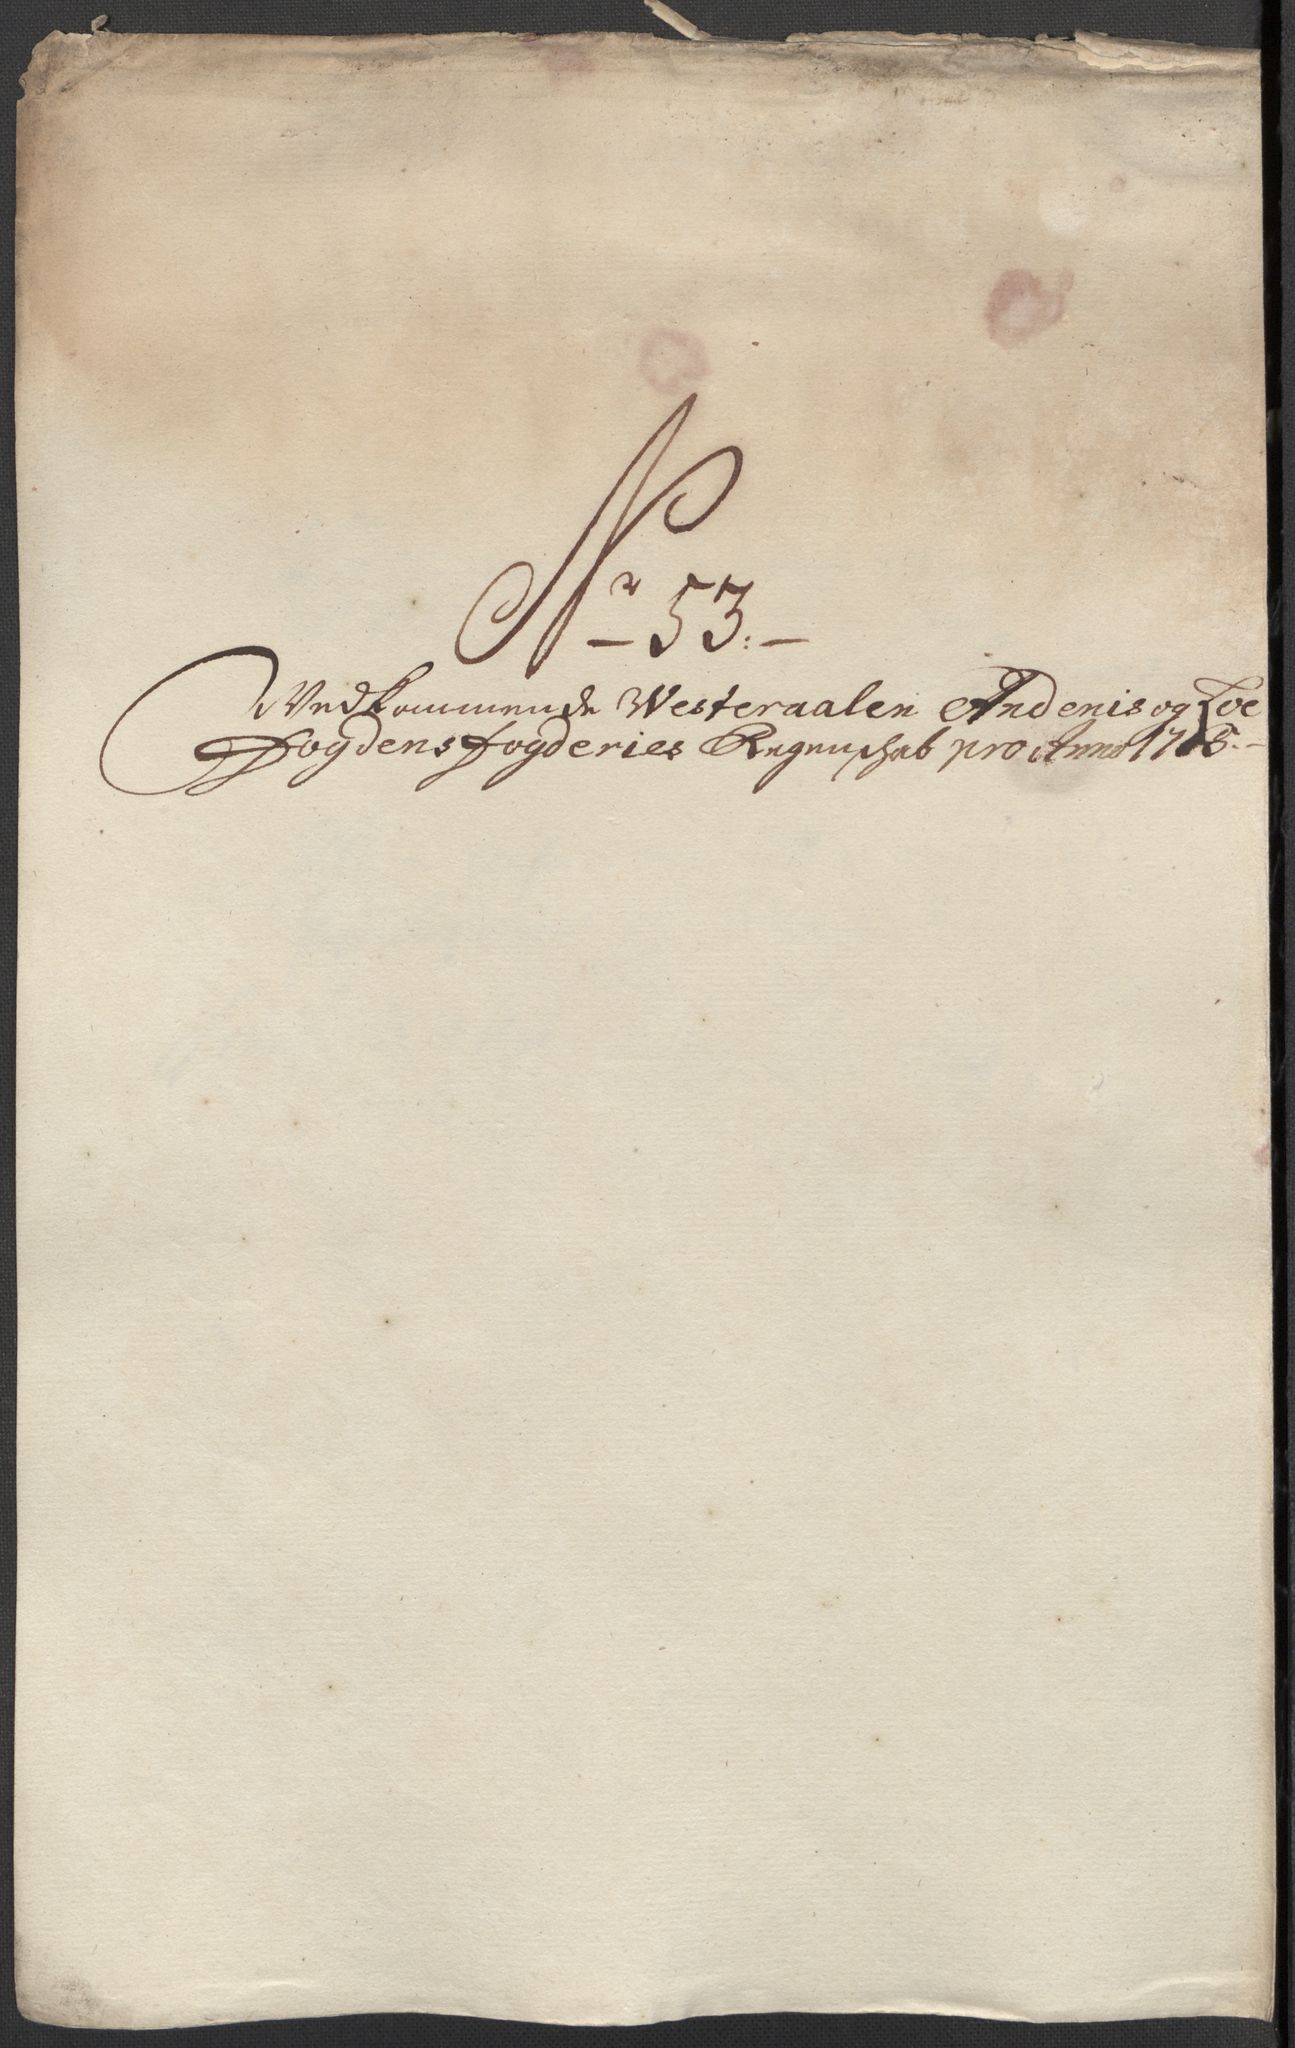 Nr 53.
Vedkommende Westeraalen Andenis og Loe
Fogdens fogderies Regenschab pro Anno 1715.